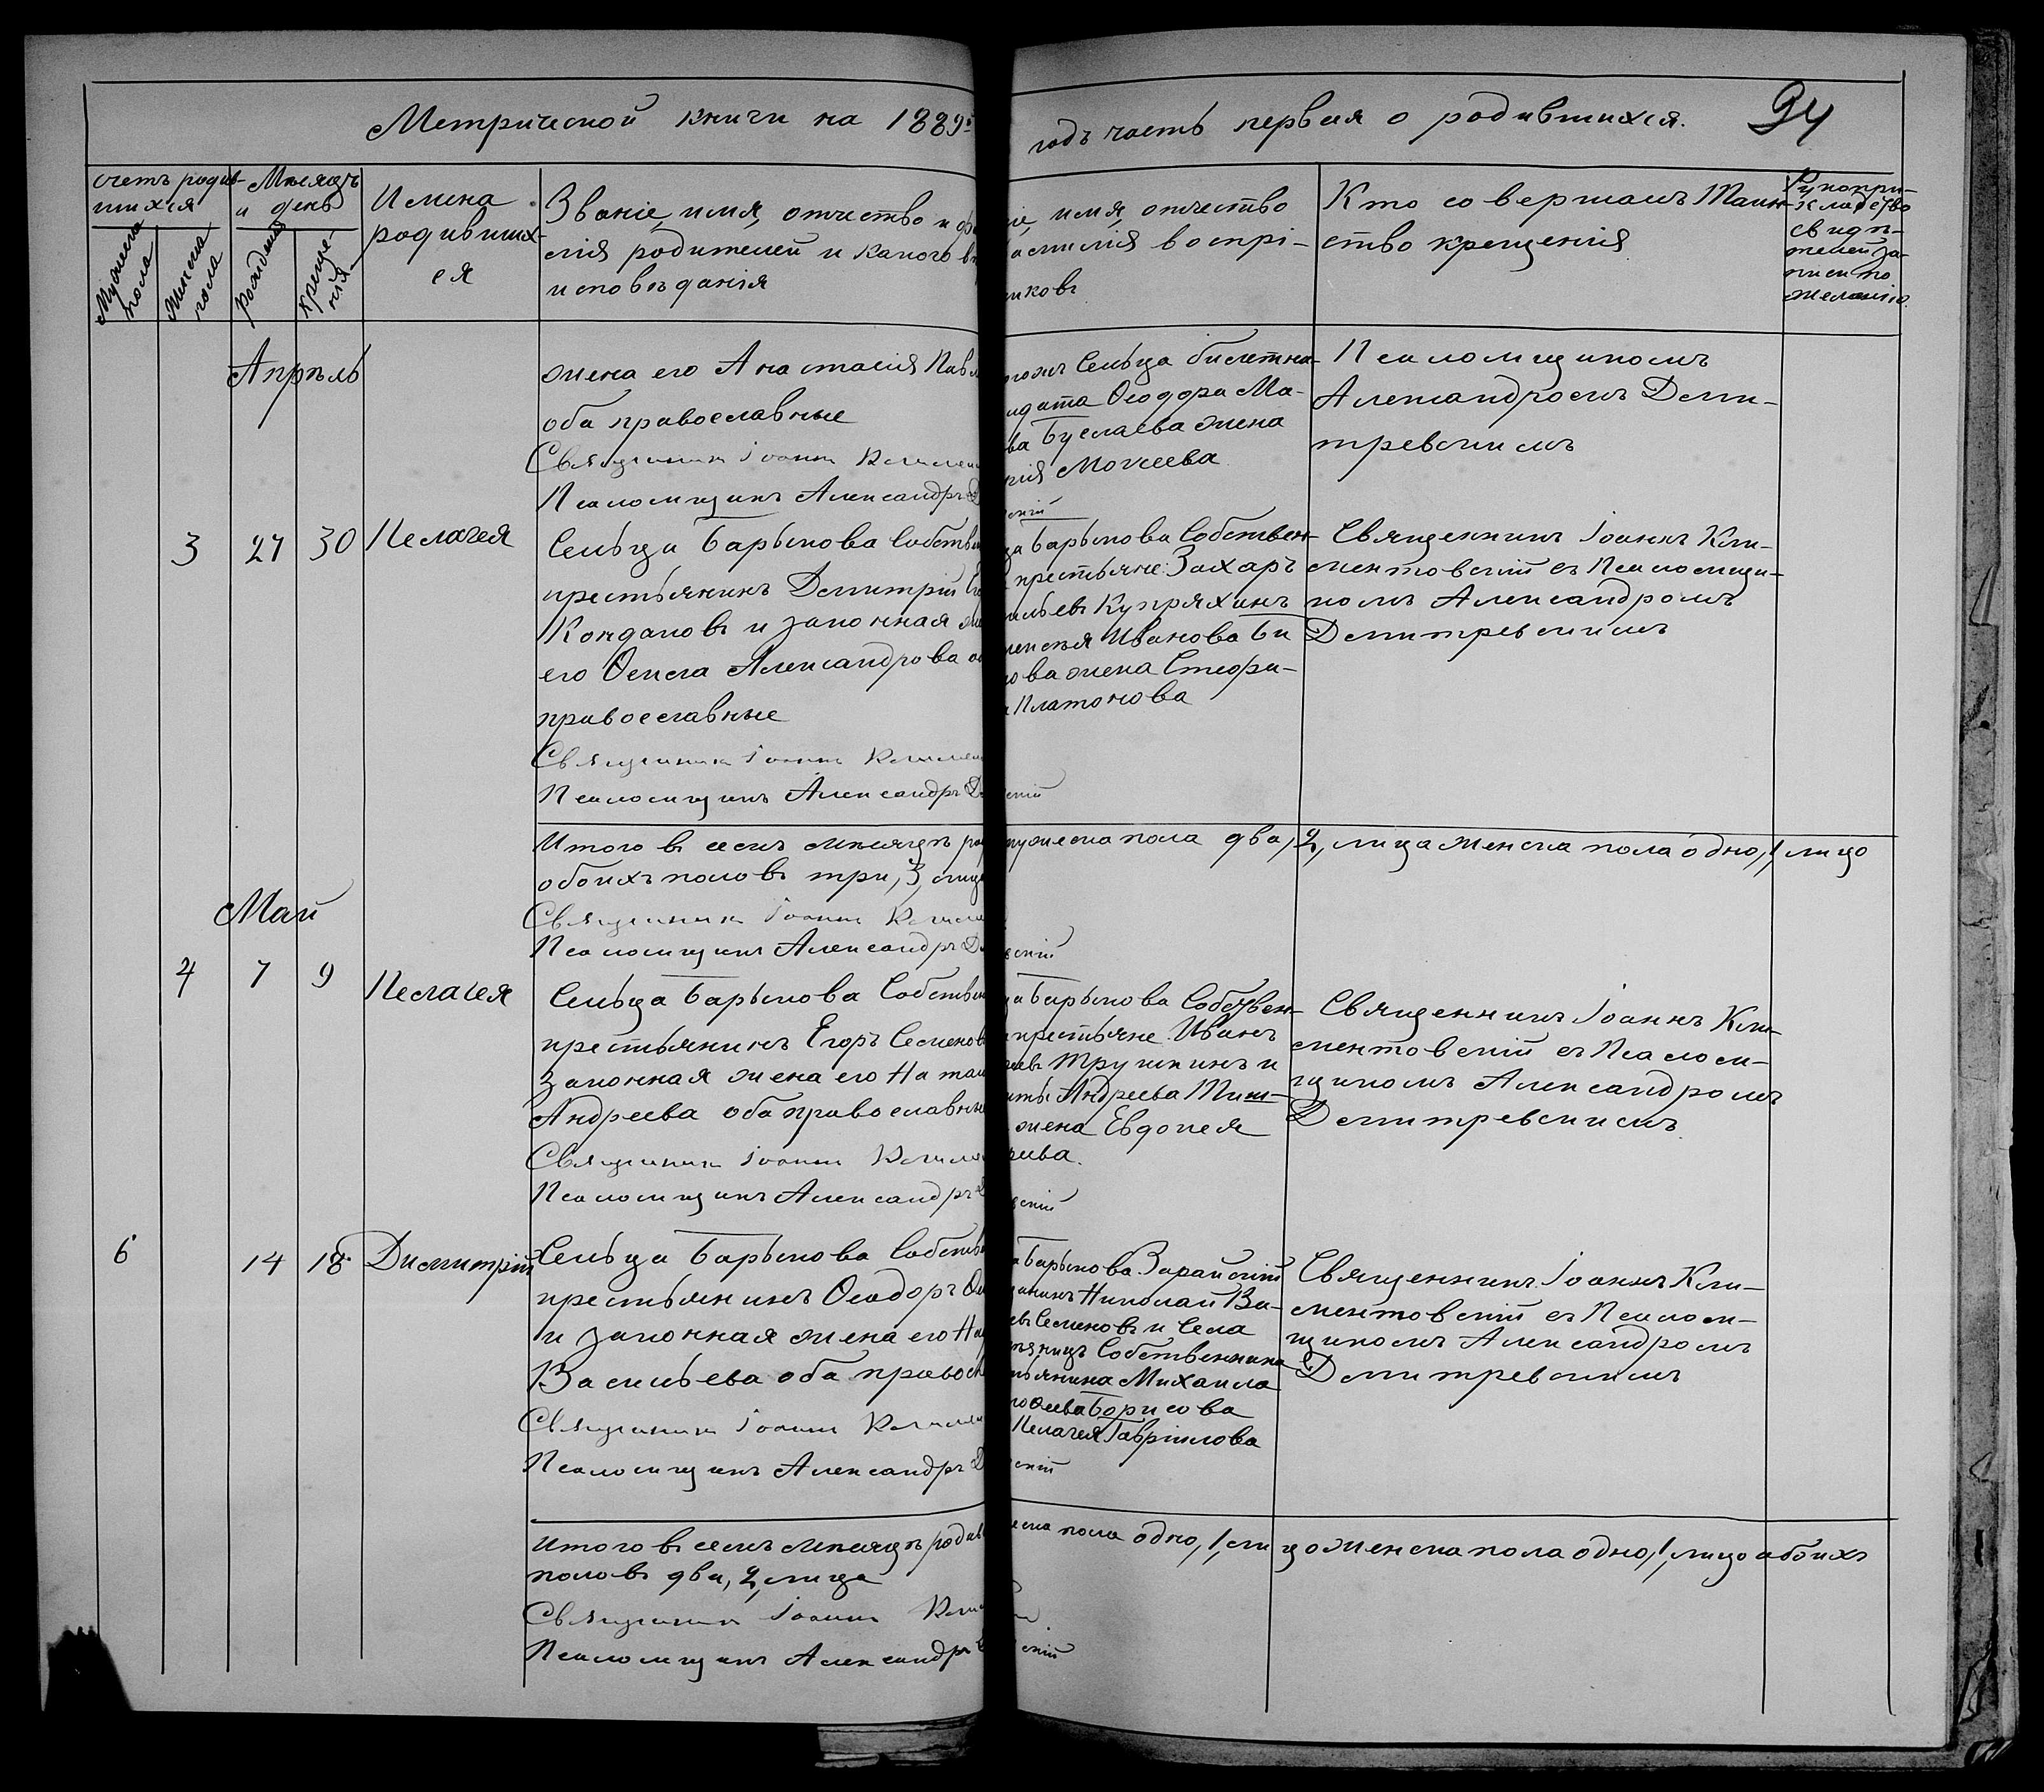 Метрической книги на 1889й годъ часть первая о родившихся. 94
Счетъ родив-
шихся
Мужеска
пола
Женска
пола
Мѣсяцъ
и день
рожденія
креще-
нія
Имена
родивших-
ся
Званіе, имя, отчество и фа
лія родителей и какого в
исповѣданія
іе, имя, отчество
амилія воспрі-
никовъ
Кто совершалъ Таин-
ство крещенія
Рукопри-
кладство
свидѣ-
телей за-
писи по
желанію.
Апрѣль
жена его Анастасія Павл
оба православные
Священникъ Іоаннъ Климен
Псаломщикъ Александръ Д
тогожъ Сельца билетна-
лдата Ѳеодора Ма-
ва Буслаева жена
рія Моисеева
скій
Псаломщикомъ
Александромъ Дими-
тревскимъ
3 27 30 Пелагея
Сельца Барыкова Собствен
крестьянинъ Димитрій Ег
Кондаковъ и законная же
его Ѳекла Александрова об
православные
Священникъ Іоаннъ Климен
Псаломщикъ Александръ Ди
ца Барыкова Собствен-
крестьяне: Захаръ
сильевъ Купряхинъ
Ивановa Би
кова жена Стефа-
а Платонова
скій
Священникъ Іоаннъ Кли-
ментовскій съ Псаломщи-
комъ Александромъ
Димитревскимъ
Итого въ семъ мѣсяцѣ род
обоихъ половъ три, 3, лица
Священникъ Іоаннъ Климе
Псаломщикъ Александръ Ди
мужеска пола два, 2, лица женска пола одно, 1 лицо
вскій
Май
4 7 9 Пелагея
Сельца Барыкова Собствен
крестьянинъ Егоръ Семеновъ
Законная жена его Натал
Андреева оба православны
Священникъ Іоаннъ Климен
Псаломщикъ Александръ Д
ца Барыкова Собствен-
крестьяне Иванъ
евъ Трушкинъ и
Андреева Тиш-
жена Евдокея
реева.
вскій
Священникъ Іоаннъ Кли-
ментовскій съ Псалом-
щикомъ Александромъ
Димитревскимъ.
6 14 18 Димитрій
Сельца Барыкова Собств
крестьянинъ Ѳеодоръ
и законная жена его На
Васильева оба правосл
Священникъ Іоаннъ Климен
Псаломщикъ Александръ Д
а Барыкова Зарайскій
щанинъ Николай Ва-
евъ Семеновъ и Села
Собственника
тьянина Михаила
Борисова
Пелагея Гаврилова
скій
Священникъ Іоаннъ Кли-
ментовскій съ Псалом-
щикомъ Александромъ
Димитревскимъ
Итого въ семъ мѣсяцѣ родив
половъ два, 2, лица
Священникъ Іоаннъ Клим
Псаломщикъ Александръ
еска пола одно, 1, лицо женска пола одно, 1, лицо обоихъ
скій